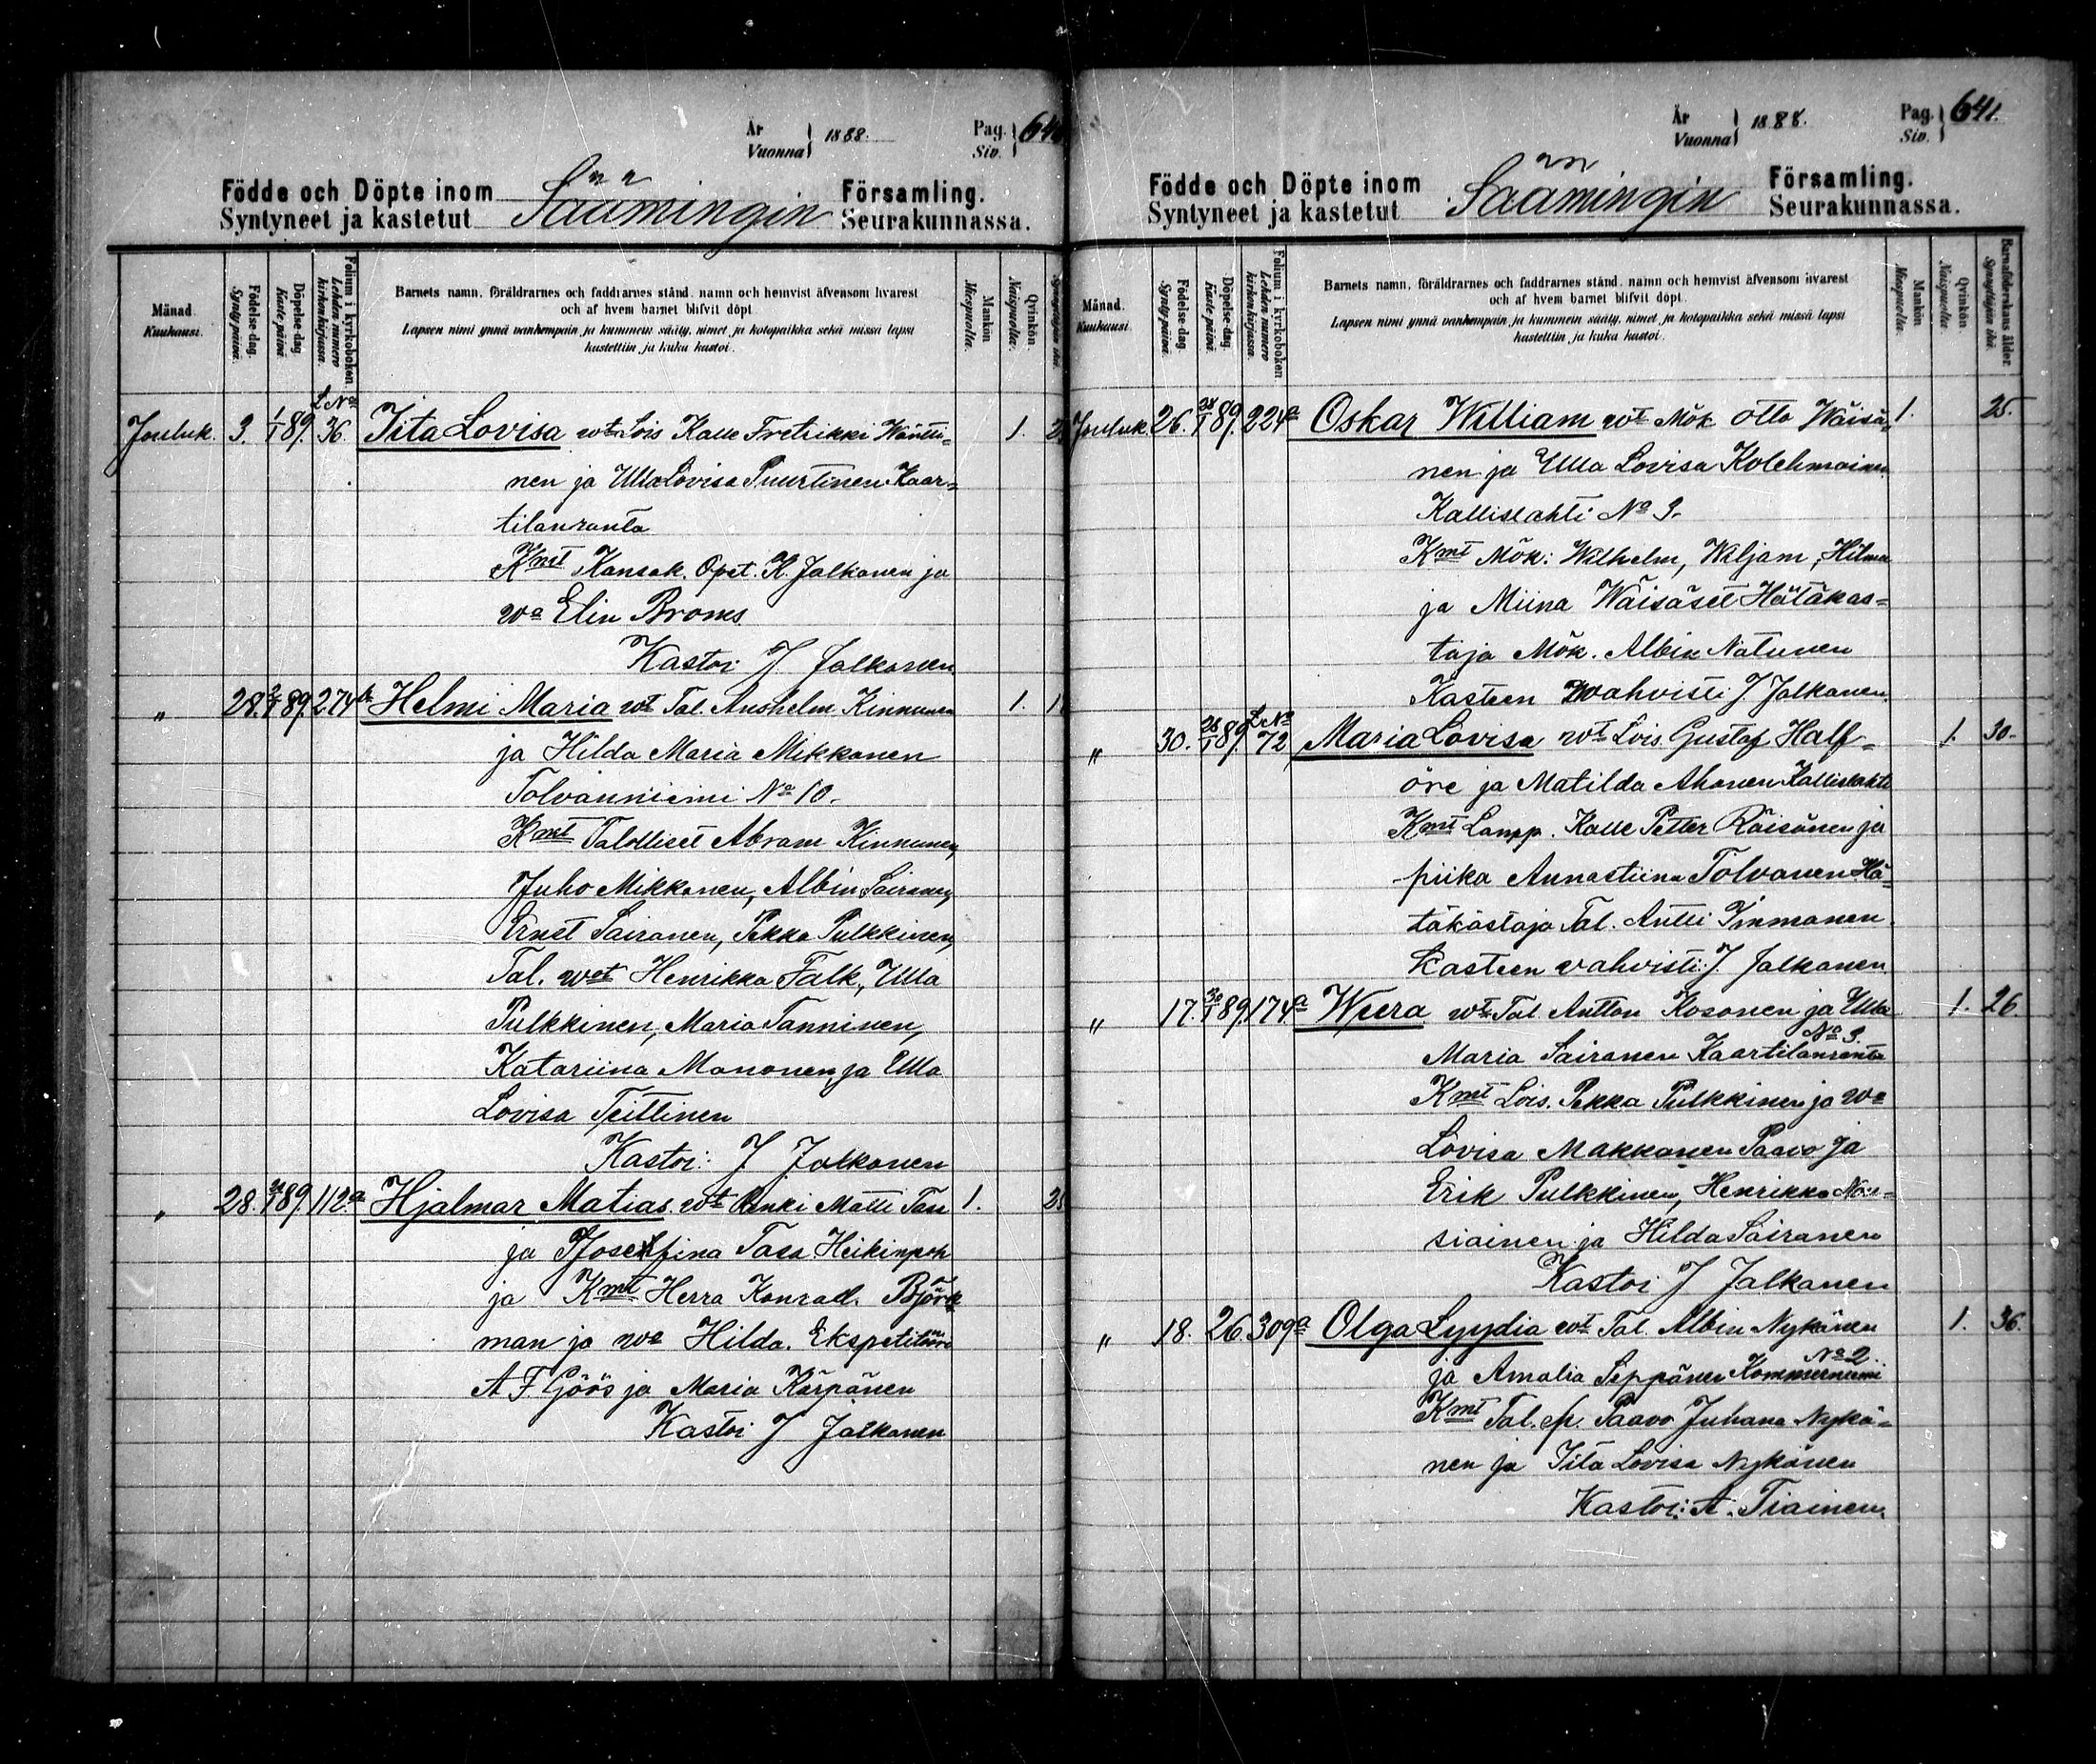 År
Vuonna } 1888. Pag. Siv. } 640
Födde och Döpte inom Församling.
Syntyneet ja kastetut Säämingin Seurakunnassa.
Månad. Kuukausi.
Födelse-dag. Syntypäivä.
Döpelse-dag Kaste päivä
Folium i kyrkoboken Lehden numero kirkonkirjassa.
Barnets namn, föräldrarnes och faddrarnes stånd, namn och hemvist äfvensom hvarest
och af hvem barnet blifvit döpt
Lapsen nimi ynnä vanhempain ja kummein sääty, nimet ja kotopaikka sekä missä lapsi
kastettiin, ja kuka kastoi.
Mankön Miespuolta.
Qvinkön. Naispuolta.
L. No
Jouluk. 3. 1/1 89. 36. Iita Lovisa wt Lois Kalle Fretrikki Wäntti- 1.
nen ja Ulla Lovisa Puurtinen Kaar-
tilanranta
Kmt Kansak. Opet. K. Jalkanen ja
wa Elin Broms
Kastoi J. Jalkanen.
" 28. 2/1 89. 274 b Helmi Maria wt Tal. Anshelm Kinnunen 1.
ja Hilda Maria Mikkonen
Tolvanniemi No 10.
Kmt Talolliset Abram Kinnunen,
Juho Mikkonen, Albin Sairanen,
Ernst Sairanen, Pekka Pulkkinen,
Tal. wot Henrikka Falk, Ulla
Pulkkinen, Maria Tanninen,
Katariina Mononen ja Ulla
Lovisa Teittinen
Kastoi: J Jalkanen
" 28. 89. 112 a Hjalmar Matias. wt Renki Matti Tass 1.
ja Josefina Tass Heikinpoh
ja Kmt Herra Konrad. Björk
man ja wa Hilda. Ekspetitööri
A F Göös ja Maria Kärpänen
Kastoi J Jalkanen
År
Vuonna } 1888. Pag. Siv. } 641.
Födde och Döpte inom Församling.
Syntyneet ja kastetut Säämingin Seurakunnassa.
Månad. Kuukausi.
Födelse-dag. Syntypäivä.
Döpelse-dag. Kaste päivä
Folium i kyrkoboken Lehden numero kirkonkirjassa.
Barnets namn, föräldrarnes och faddrarnes stånd, namn och hemvist äfvensom hvarest
och af hvem barnet blifvit döpt.
Lapsen nimi ynnä vanhempain ja kummein sääty, nimet ja kotopaikka sekä missä lapsi
kastettiin, ja kuka kastoi.
Mankön Miespuolta.
Qvinkön. Naispuolta.
Barnaföderskans ålder. Synnyttäjän ikä.
Jouluk 26. 89. 224 a Oskar William wt Mök Otto Wäisä- 1. 25.
nen ja Ulla Lovisa Kolehmainen
Kallislahti No 3.
Kmt Mök: Wilhelm, Wiljam, Hilma
ja Miina Wäisäset Hätäkas-
taja Mök. Albin Natunen
Kasteen wahvisti J Jalkanen.
" 30. 28/1 89. L. No 72 Maria Lovisa wt Lois. Gustaf Half- 1. 30.
öre ja Matilda Ahonen Kallislahti
Kmt Lampp. Kalle Petter Räisänen ja
piika Annastiina Tolvanen Hä-
täkastaja Tal. Antti Immonen.
Kasteen vahvisti: J. Jalkanen
" 17. 30/1 89. 174 a Weera wt Tal Antton Kosonen ja Ulla 1. 26.
Maria Sairanen Kaartilanranta No 3.
Kmt Lois. Pekka Pulkkinen ja wa
Lovisa Makkonen Paavo ja
Erik Pulkkinen, Henrikka Nou-
siainen ja Hilda Sairanen
Kastoi J Jalkanen
" 18. 26. 309 a Olga Lyydia wt Tal. Albin Nykänen 1. 36.
ja Amalia Seppänen Kommerniemi No 2.
Kmt Tal. p. Paavo Juhana Nykä-
nen ja Iita Lovisa Nykänen
Kastoi: A. Tiainen.